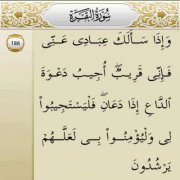 سُورَةُ الْبَقَرَةِ
186
وَإِذَا سَأَلَكَ عِبَادِى عَنِّى
فَإِنِّى قَرِيبٌ ۖ أُجِيبُ دَعْوَةَ
الدَّاعِ إِذَا دَعَانِ ۖ فَلْيَسْتَجِيبُوا۟
لِى وَلْيُؤْمِنُوا۟ بِى لَعَلَّهُمْ
يَرْشُدُونَ